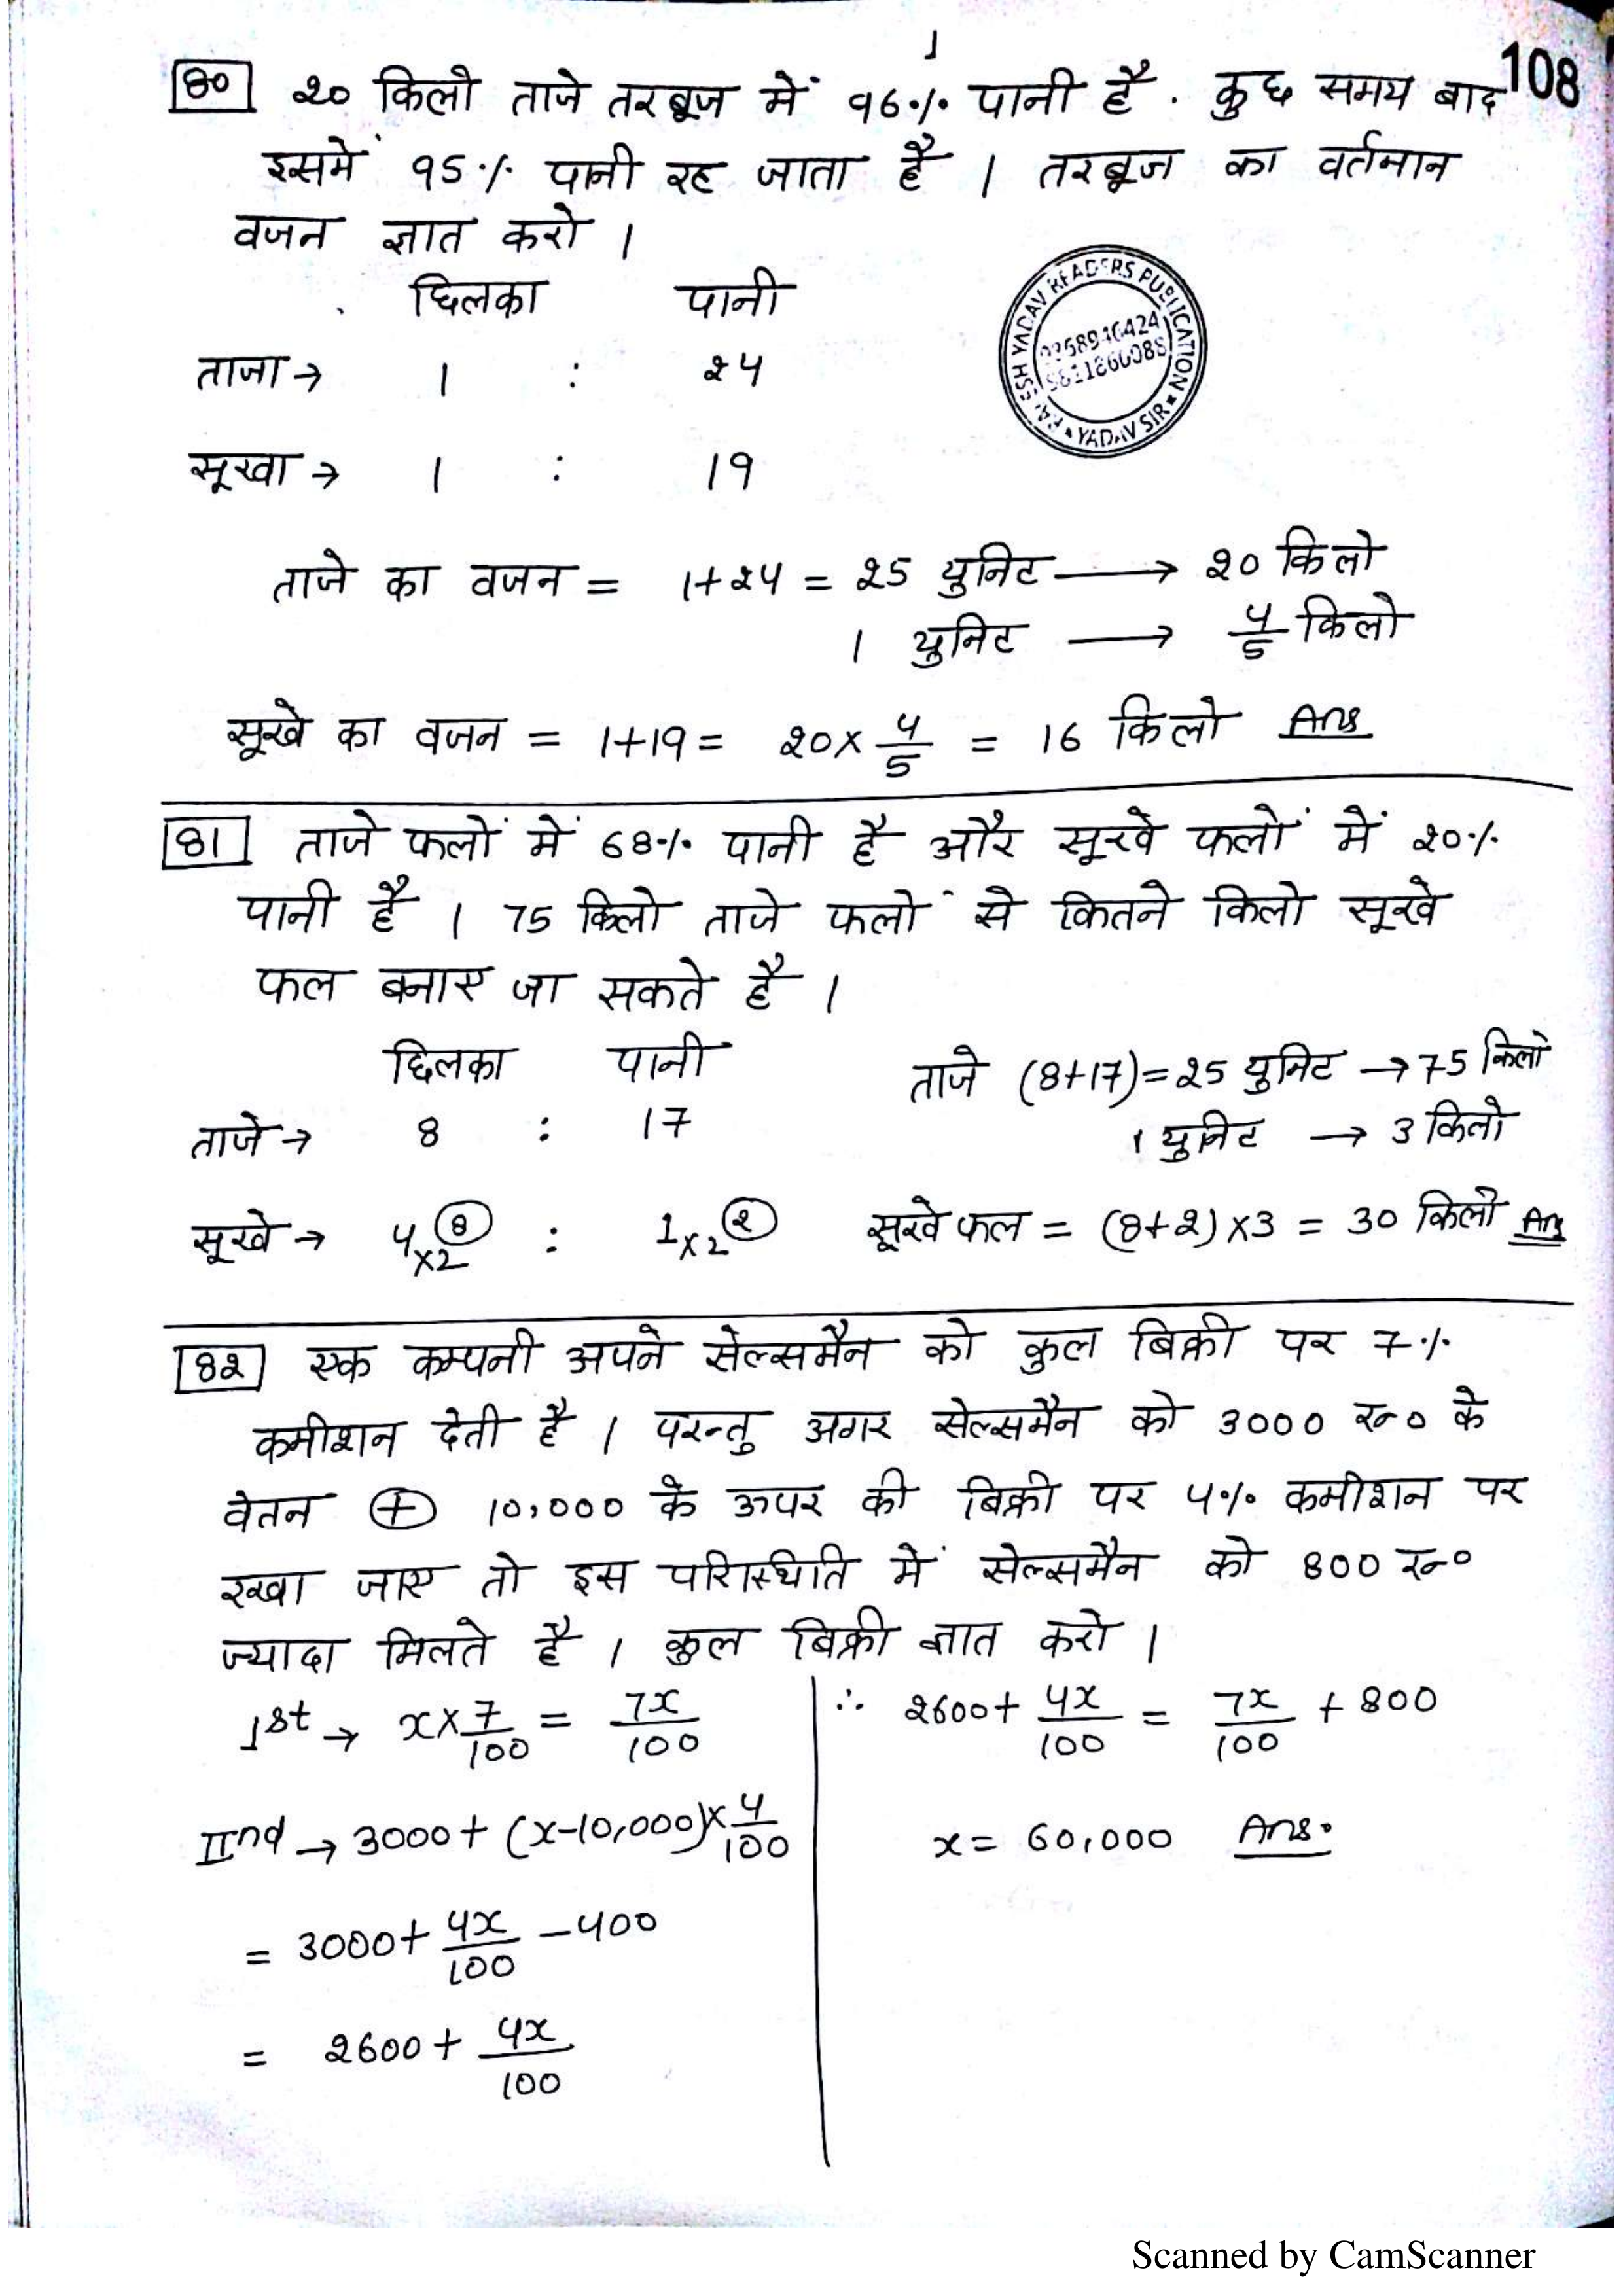 108
80 20 किलो ताजे तरबूज में 96% पानी है. कुछ समय बाद
इसमें 95% पानी रह जाता है । तरबूज का वर्तमान
वजन ज्ञात करो ।
छिलका पानी
ताजा → 1 : 24
सूखा → 1 : 19
READERS PUBLICATION
YADAV SIR
ताजे का वजन = 1+24 = 25 युनिट → 20 किलो
1 युनिट → 4/5 किलो
सूखे का वजन = 1+19 = 20 × 4/5 = 16 किलो Ans
81 ताजे फलों में 68% पानी है और सूखे फलों में 20%
पानी है । 75 किलो ताजे फलों से कितने किलो सूखे
फल बनाए जा सकते है ।
छिलका पानी ताजे (8+17) = 25 युनिट → 75 किलो
ताजे → 8 : 17 1 युनिट → 3 किलो
सूखे → 4×2 (8) : 1×2 (2) सूखे फल = (8+2)×3 = 30 किलो Ans
82 एक कम्पनी अपने सेल्समैन को कुल बिक्री पर 7%
कमीशन देती है । परन्तु अगर सेल्समैन को 3000 रू० के
वेतन + 10,000 के ऊपर की बिक्री पर 4% कमीशन पर
रखा जाए तो इस परिस्थिति में सेल्समैन को 800 रू०
ज्यादा मिलते है । कुल बिक्री ज्ञात करो ।
1st → x × 7/100 = 7x/100
IInd → 3000 + (x-10,000) × 4/100
= 3000 + 4x/100 - 400
= 2600 + 4x/100
∴ 2600 + 4x/100 = 7x/100 + 800
x = 60,000 Ans.
Scanned by CamScanner